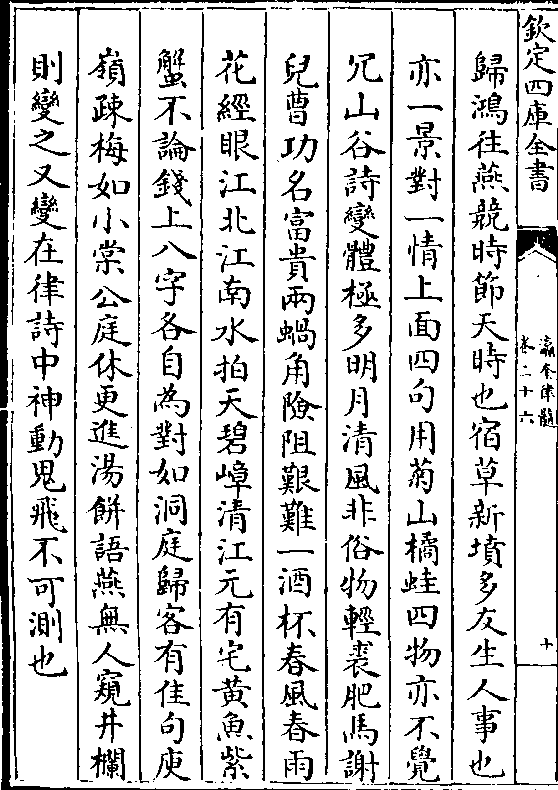 欽定四庫全書
瀛奎律髓
卷二十六
十
歸鴻往燕競時節天時也宿草新墳多友生人事也
亦一景對一情上面四句用菊山橘蛙四物亦不覺
冗山谷詩變體極多明月清風非俗物輕裘肥馬謝
兒曹功名富貴兩蝸角險阻艱難一酒杯春風春雨
花經眼江北江南水拍天碧嶂清江元有宅黄魚紫
蟹不論錢上八字各自為對如洞庭歸客有佳句庾
嶺疎梅如小棠公庭休更進湯餅語燕無人窺井欄
則變之又變在律詩中神動鬼飛不可測也